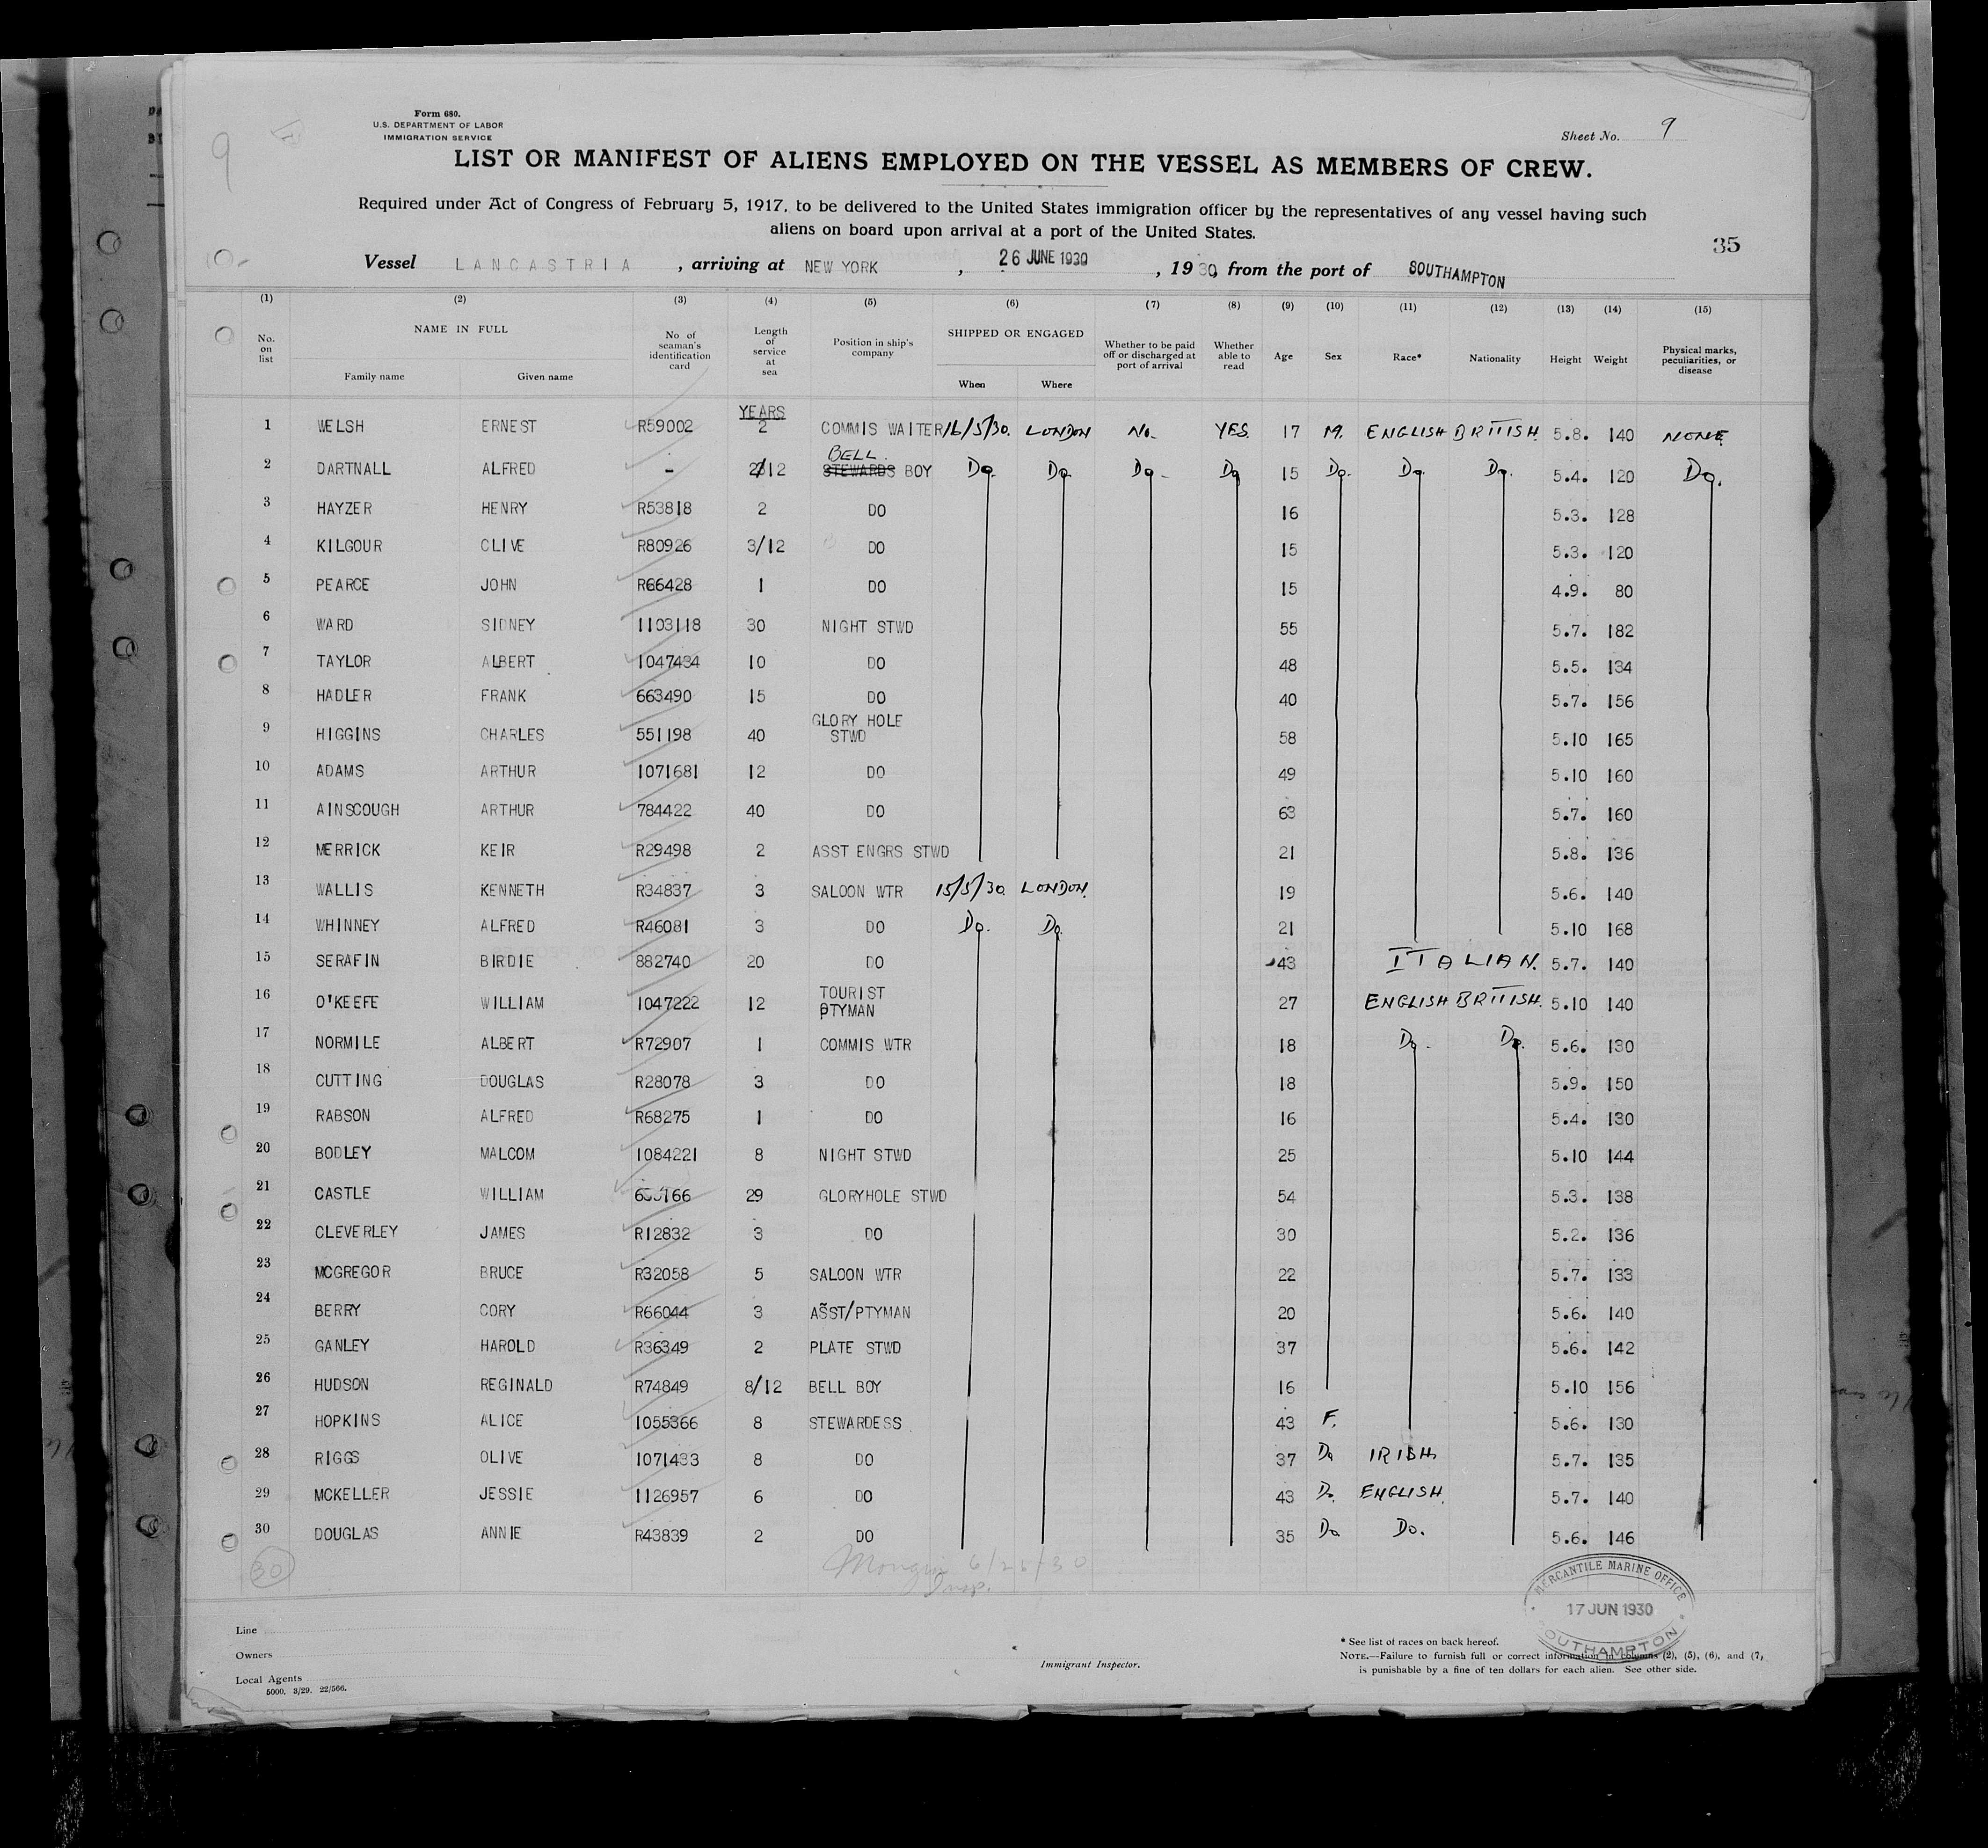 Form 680.
U.S. DEPARTMENT OF LABOR
IMMIGRATION SERVICE
Sheet No. 9
9
LIST OR MANIFEST OF ALIENS EMPLOYED ON THE VESSEL AS MEMBERS OF CREW.
Required under Act of Congress of February 5, 1917, to be delivered to the United States immigration officer by the representatives of any vessel having such
aliens on board upon arrival at a port of the United States.
35
Vessel LANCASTRIA, arriving at NEW YORK, 26 JUNE 1930, 1930, from the port of SOUTHAMPTON
(1) (2) (3) (4) (5) (6) (7) (8) (9) (10) (11) (12) (13) (14) (15)
No. on list NAME IN FULL Family name Given name No. of seaman's identification card Length of service at sea Position in ship's company SHIPPED OR ENGAGED When Where Whether to be paid off or discharged at port of arrival Whether able to read Age Sex Race* Nationality Height Weight Physical marks, peculiarities, or disease
YEARS
1 WELSH ERNEST R59002 2 COMMIS WAITER 16/5/30. LONDON No. YES. 17 M. ENGLISH BRITISH. 5.8. 140 NONE
BELL.
2 DARTNALL ALFRED - 2/12 STEWARDS BOY Do. Do. Do. Do 15 Do. Do. Do. 5.4. 120 Do.
3 HAYZER HENRY R53818 2 DO 16 5.3. 128
4 KILGOUR CLIVE R80926 3/12 DO 15 5.3. 120
5 PEARCE JOHN R66428 1 DO 15 4.9. 80
6 WARD SIDNEY 1103118 30 NIGHT STWD 55 5.7. 182
7 TAYLOR ALBERT 1047434 10 DO 48 5.5. 134
8 HADLER FRANK 663490 15 DO 40 5.7. 156
9 HIGGINS CHARLES 551198 40 GLORY HOLE STWD 58 5.10 165
10 ADAMS ARTHUR 1071681 12 DO 49 5.10 160
11 AINSCOUGH ARTHUR 784422 40 DO 63 5.7. 160
12 MERRICK KEIR R29498 2 ASST ENGRS STWD 21 5.8. 136
13 WALLIS KENNETH R34837 3 SALOON WTR 15/5/30. LONDON. 19 5.6. 140
14 WHINNEY ALFRED R46081 3 DO Do. Do. 21 5.10 168
15 SERAFIN BIRDIE 882740 20 DO 43 ITALIAN. 5.7. 140
16 O'KEEFE WILLIAM 1047222 12 TOURIST PTYMAN 27 ENGLISH BRITISH. 5.10 140
17 NORMILE ALBERT R72907 1 COMMIS WTR 18 Do. Do. 5.6. 130
18 CUTTING DOUGLAS R28078 3 DO 18 5.9. 150
19 RABSON ALFRED R68275 1 DO 16 5.4. 130
20 BODLEY MALCOM 1084221 8 NIGHT STWD 25 5.10 144
21 CASTLE WILLIAM 29 GLORYHOLE STWD 54 5.3. 138
22 CLEVERLEY JAMES R12832 3 DO 30 5.2. 136
23 MCGREGOR BRUCE R32058 5 SALOON WTR 22 5.7. 133
24 BERRY CORY R66044 3 ASST/PTYMAN 20 5.6. 140
25 GANLEY HAROLD R36349 2 PLATE STWD 37 5.6. 142
26 HUDSON REGINALD R74849 8/12 BELL BOY 16 5.10 156
27 HOPKINS ALICE 1055366 8 STEWARDESS 43 F. 5.6. 130
28 RIGGS OLIVE 1071433 8 DO 37 Do IRISH. 5.7. 135
29 MCKELLER JESSIE 1126957 6 DO 43 Do. ENGLISH. 5.7. 140
30 DOUGLAS ANNIE R43839 2 DO 35 Do Do. 5.6. 146
30
6/26/30
Insp.
MERCANTILE MARINE OFFICE
17 JUN 1930
SOUTHAMPTON
Line
Owners
Local Agents
5000. 3/29. 22/566.
Immigrant Inspector.
* See list of races on back hereof.
NOTE.—Failure to furnish full or correct information in columns (2), (5), (6), and (7),
is punishable by a fine of ten dollars for each alien. See other side.